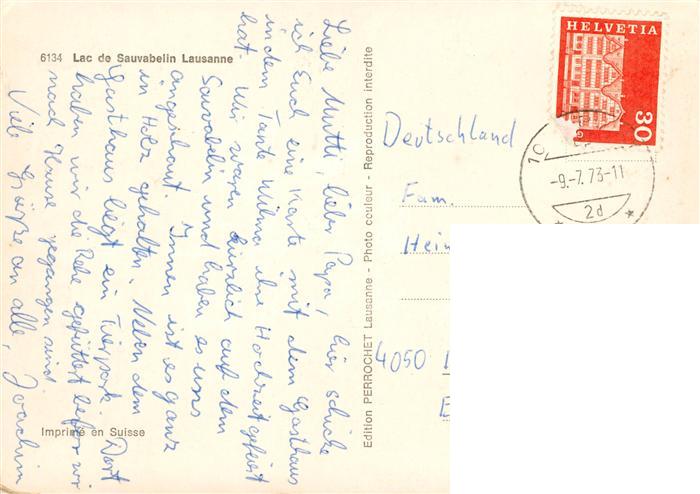 6134 Lac de Sauvabelin Lausanne
Liebe Mutti, lieber Papa, hier schicke
ich Euch eine Karte mit dem Gasthaus
in dem Tante Wilma ihre Hochzeit gefeiert
hat. Wir waren kürzlich auf dem
Sauvabelin und haben es uns
angeschaut. Innen ist es ganz
in Holz gehalten. Neben dem
Gasthaus liegt ein Tierpark. Dort
haben wir die Rehe gefüttert bevor wir
nach Hause gegangen sind.
Viele Grüße an alle, Joachim
Imprimé en Suisse
Edition PERROCHET Lausanne - Photo couleur - Reproduction interdite
HELVETIA
30
10
-9.-7.73-11
2d
Deutschland
Fam.
Hein
4050
E